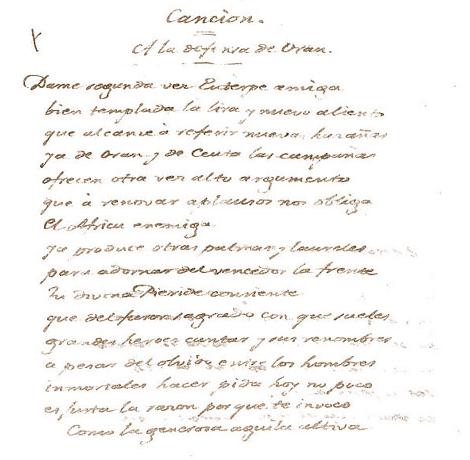 Cancion.
A la defensa de Oran.
Dame segunda vez Euterpe amiga
bien templada la lira y nuevo aliento
que alcance à referir nuevas hazañas
ya de Oran y de Ceuta las campañas
ofrecen otra vez alto argumento
que à renovar aplausos nos obliga
el Africa enemiga
ya produce otras palmas y laureles
para adornar del vencedor la frente
Tu divina Pieride consiente
que del furor sagrado con que sueles
grandes heroes cantar y sus renombres
a pesar del olvido entre los hombres
inmortales hacer, pida hoy no poco
es justa la razon porque te invoco
Como la generosa aguila altiva